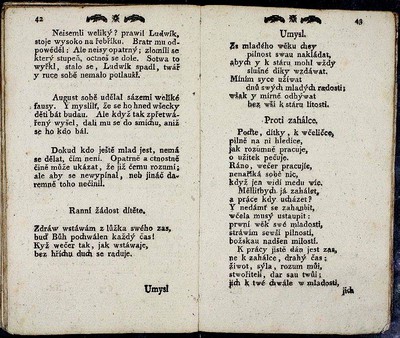 42
Neisemli weliký? prawil Ludwik,
stoje wysoko na řebříku. Bratr mu od-
powěděl: Ale neisy opatrný; zlomíli se
který stupeň, octneš se dole. Sotwa to
wyřkl, stalo se, Ludwik spadl, twář
y ruce sobě nemalo potlaukl.
August sobě udělal sázemi weliké
fausy. Y myslilť, že se ho hned wšecky
děti bát budau. Ale když tak zpřetwá-
řený wyšel, dali mu se do smíchu, aniž
se ho kdo bál.
Dokud kdo ještě mlad jest, nemá
se dělat, čím není. Opatrně a ctnostně
čině může ukázat, že již čemu rozumí;
ale aby se newypínal, neb jináč da-
remně toho nečinil.
Ranní žádost dítěte.
Zdráw wstáwám z lůžka swého zas,
buď Bůh pochwálen každý čas!
Kyž wečer tak, jak wstáwaje,
bez hříchu duch se raduje.
Umysl
43
Umysl.
Ze mladého wěku chcy
pilnost swau nakládat,
abych y k stáru mohl wždy
slušné díky wzdáwat.
Míním syce užíwat
dnů swých mladých radosti;
wšak y mírně odbýwat
bez wší k stáru lítosti.
Proti zahálce.
Poďte, dítky, k wčeličce,
pilně na ni hledíce,
jak rozumně pracuje,
o užitek pečuje.
Ráno, wečer pracujíc,
nenaříká sobě nic,
když jen widí medu wíc.
Mělliťbych já zahálet,
a práce kdy ucházet?
Y nedámť se zahanbit,
wčela musý ustaupit:
prwní wěk swé mladosti,
stráwím sewší pilností,
božskau nadšen milostí.
K práci jistě dán jest zas,
ne k zahálce, drahý čas;
žiwot, sýla, rozum můj,
stwořiteli, dar sau twůj:
jich k twé chwále w mladosti,
jich